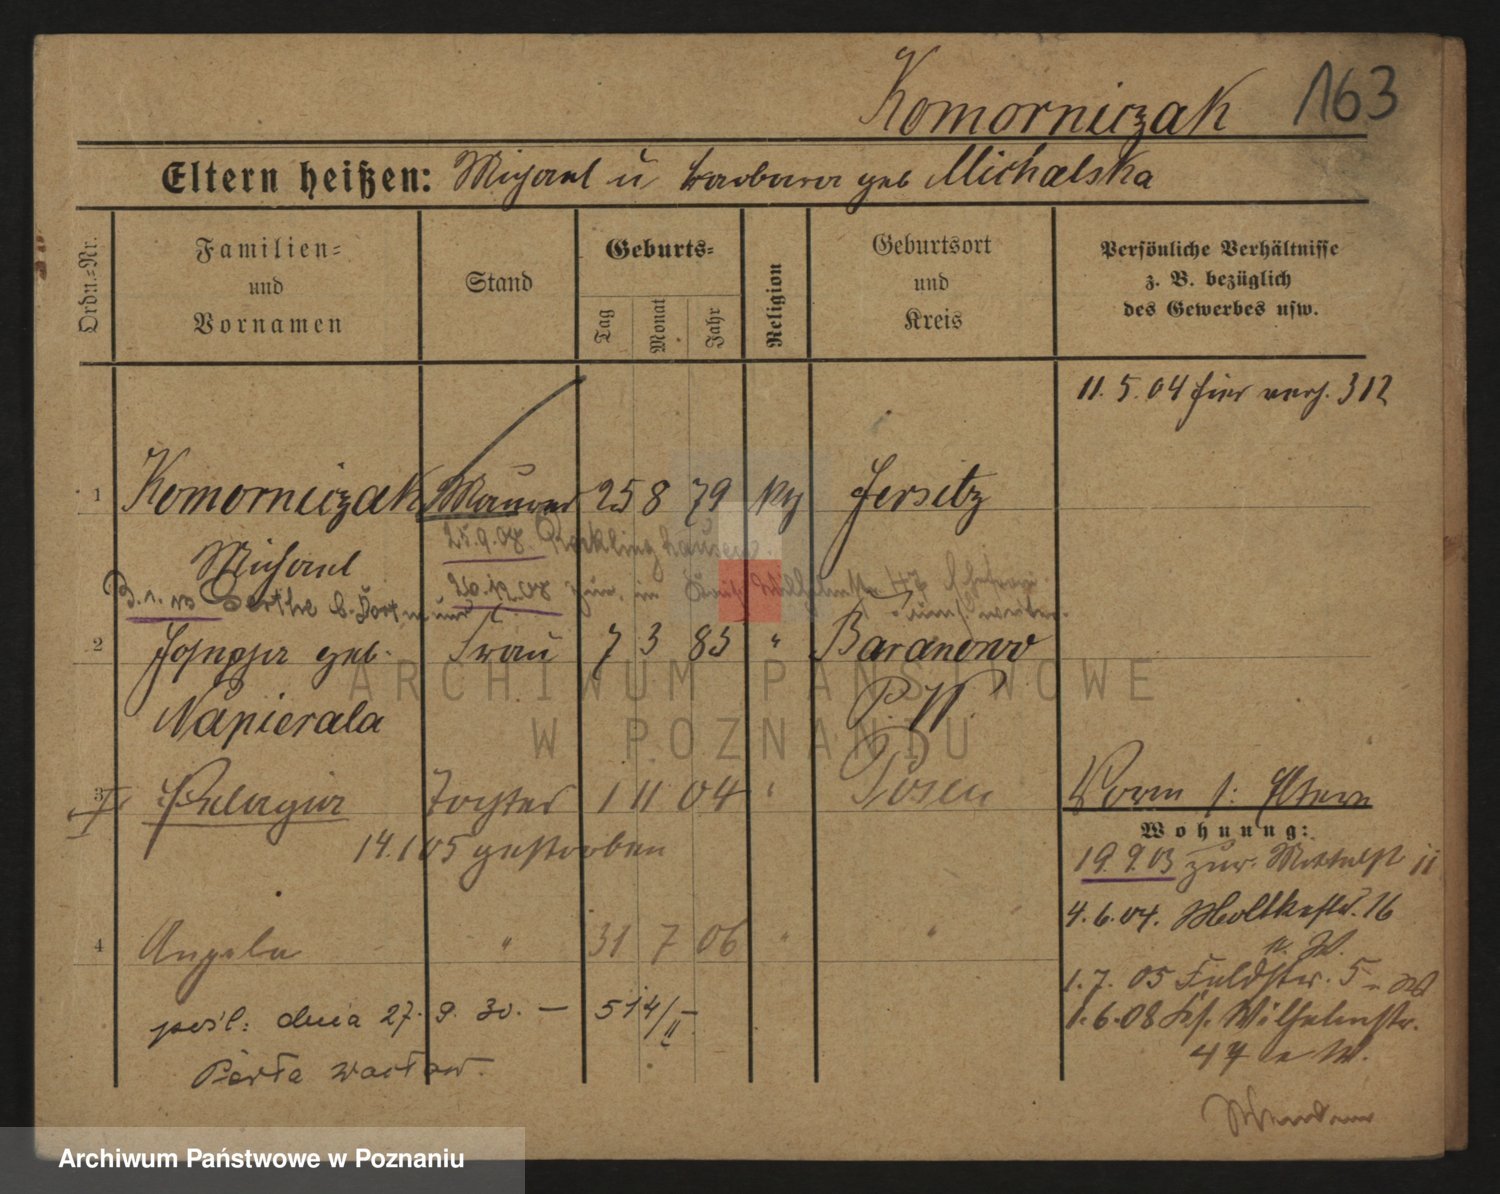 Komorniczak 163
Eltern heißen: Michael u Barbara geb Michalska
Ordn.=Nr.
Familien=
und
Vornamen
Stand
Geburts=
Tag
Monat
Jahr
Religion
Geburtsort
und
Kreis
Persönliche Verhältnisse
z. B. bezüglich
des Gewerbes usw.
11. 5. 04 hier verh. 312
1 Komorniczak Maurer 25 8 79 kth Jersitz
25.9.08. Recklinghausen.
Michael
26.12.08 zur. in
2 Josepha geb. Frau 7 3 85 " Baranowo
P. W.
Napierala
3 Pelagia Tochter 1 11 04 " Posen
Vorm s: Eltern
Wohnung:
14.1 05 gestorben
19. 9. 03 zur. Mittelst 11
4. 6. 04. Moltkestr. 16
4 Angela " 31 7 06 " "
1. 7. 05 Feldstr. 5
1. 6. 08 Ks. Wilhelmstr.
47
pośl: dnia 27. 9. 30. — 514/II
Perła Wacław.
ARCHIWUM PAŃSTWOWE
W POZNANIU
Archiwum Państwowe w Poznaniu